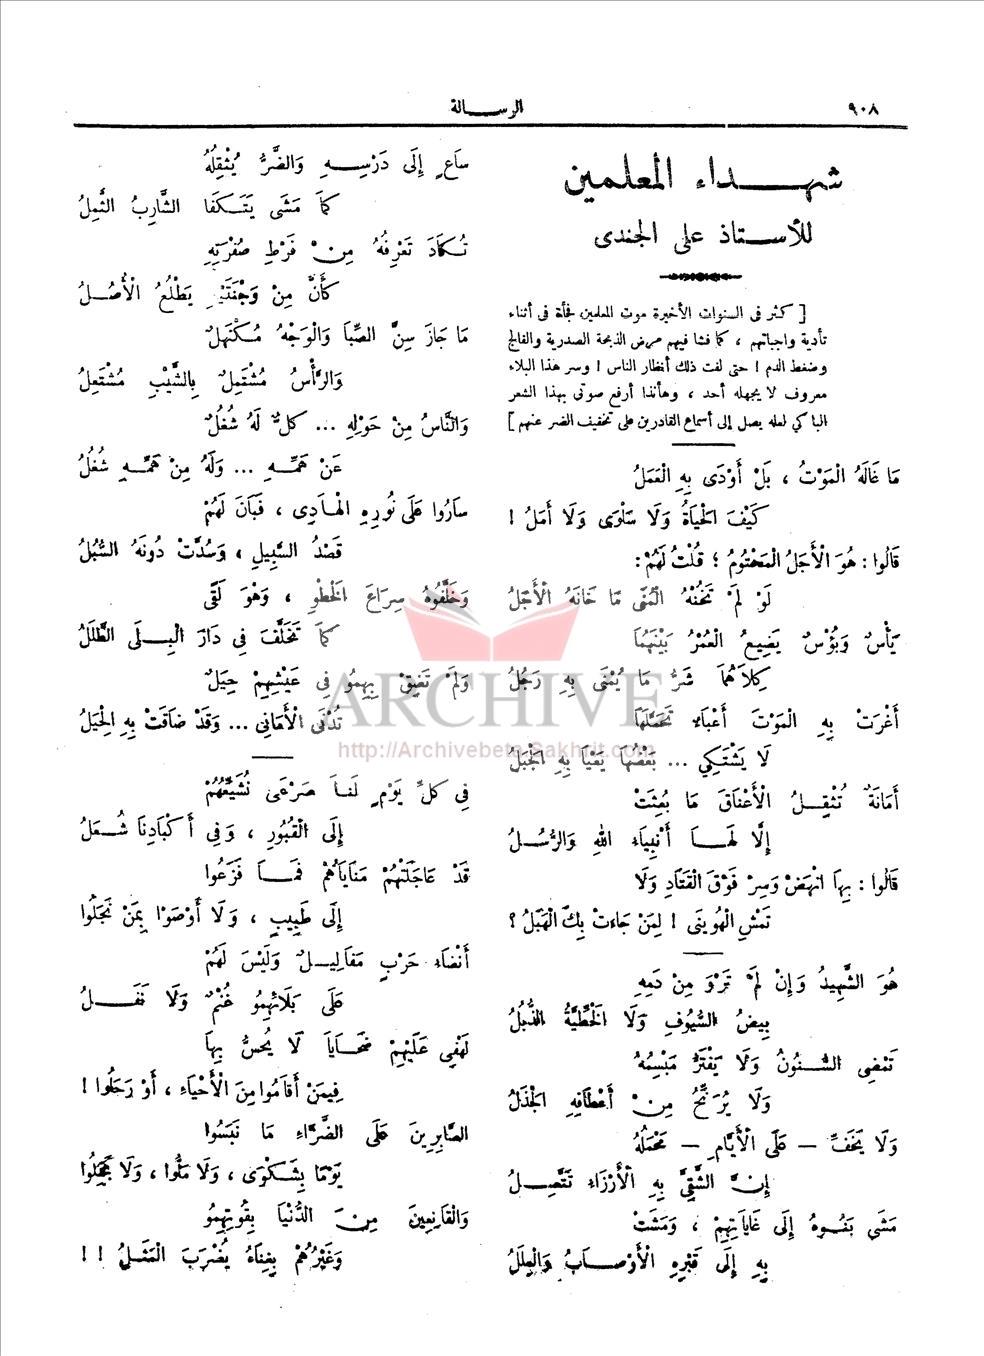 ٩٠٨
الرسالة
شهداء المعلمين
للأستاذ على الجندى
[ كثر فى السنوات الأخيرة موت المعلمين فجأة فى أثناء
تأدية واجباتهم ، كما فشا فيهم مرض الذبحة الصدرية والفالج
وضغط الدم ! حتى لفت ذلك أنظار الناس ! وسر هذا البلاء
معروف لا يجهله أحد ، وهأنذا أرفع صوتى بهذا الشعر
الباكي لعله يصل إلى أسماع القادرين على تخفيف الضر عنهم ]
مَا غَالَهُ الْمَوْتُ ، بَلْ أَوْدَى بِهِ الْعَمَلُ
كَيْفَ الْحَيَاةُ وَلَا سَلْوَى وَلَا أَمَلُ !
قَالُوا : هُوَ الْأَجَلُ الْمَحْتُومُ ؛ قُلْتُ لَهُمْ :
لَوْ لَمْ تَخُنْهُ الْمُنَى مَا خَانَهُ الْأَجَلُ
يَأْسٌ وَبُؤْسٌ يَضِيعُ الْعُمْرُ بَيْنَهُمَا
كِلَاهُمَا شَرُّ مَا يُمْنَى بِهِ رَجُلُ
أَغْرَتْ بِهِ الْمَوْتَ أَعْبَاءٌ تَحَمَّلَهَا
لَا يَشْتَكِي ... بَعْضُهَا يَعْيَا بِهِ الْجَبَلُ
أَمَانَةٌ تُثْقِلُ الْأَعْنَاقَ مَا بُعِثَتْ
إِلَّا لَهَا أَنْبِيَاءُ اللهِ وَالرُّسُلُ
قَالُوا : بِهَا انْهَضْ وَسِرْ فَوْقَ الْقَتَادِ وَلَا
تَمْشِ الْهُوَيْنَى ! لِمَنْ جَاءَتْ بِكَ الْهَبَلُ ؟
هُوَ الشَّهِيدُ وَإِنْ لَمْ تَرْوَ مِنْ دَمِهِ
بِيضُ السُّيُوفِ وَلَا الْخَطِّيَّةُ الذُّبُلُ
تَمْضِى السُّنُونُ وَلَا يَفْتَرُّ مَبْسِمُهُ
وَلَا يُرَنِّحُ مِنْ أَعْطَافِهِ الْجَذَلُ
وَلَا يَخِفُّ — عَلَى الْأَيَّامِ — مَحْمَلُهُ
إِنَّ الشَّقِيَّ بِهِ الْأَرْزَاءُ تَتَّصِلُ
مَشَى بَنُوهُ إِلَى غَايَاتِهِمْ ، وَمَشَتْ
بِهِ إِلَى قَبْرِهِ الْأَوْصَابُ وَالْعِلَلُ
سَاعٍ إِلَى دَرْسِهِ وَالضَّرُّ يُثْقِلُهُ
كَمَا مَشَى يَتَكَفَّا الشَّارِبُ الثَّمِلُ
تُكَادَ تَعْرِفُهُ مِنْ فَرْطِ صُفْرَتِهِ
كَأَنَّ مِنْ وَجْنَتَيْهِ يَطْلُعُ الْأُصُلُ
مَا جَازَ سِنَّ الصِّبَا وَالْوَجْهُ مُكْتَهِلٌ
وَالرَّأْسُ مُشْتَمِلٌ بِالشَّيْبِ مُشْتَعِلُ
وَالنَّاسُ مِنْ حَوْلِهِ ... كُلٌّ لَهُ شُغُلٌ
عَنْ هَمِّهِ ... وَلَهُ مِنْ هَمِّهِ شُغُلُ
سَارُوا عَلَى نُورِهِ الْهَادِى ، فَبَانَ لَهُمْ
قَصْدُ السَّبِيلِ ، وَسُدَّتْ دُونَهُ السُّبُلُ
وَخَلَّفُوهُ سِرَاعَ الْخَطْوِ ، وَهْوَ لَقًى
كَمَا تَخَلَّفَ فِى دَارَ الْبِلَى الطَّلَلُ
وَلَمْ تَضِقْ بِهِمُو فِي عَيْشِهِمْ حِيَلٌ
تُدْنَى الْأَمَانِي ... وَقَدْ ضَاقَتْ بِهِ الْحِيَلُ
فِي كلِّ يَوْمٍ لَنَا صَرْعَى نُشَيِّعُهُمْ
إِلَى الْقُبُورِ ، وَفِي أَكْبَادِنَا شُعَلُ
قَدْ عَاجَلَتْهُمْ مَنَايَاهُمْ فَمَا فَزَعُوا
إِلَى طَبِيبٍ ، وَلَا أَوْصَوْا بِمَنْ نَجَلُوا
أَنْضَاءُ حَرْبٍ مَفَالِيلٌ وَلَيْسَ لَهُمْ
عَلَى بَلَائِهِمُو غُنْمٌ وَلَا نَفَلُ
لَهْفِي عَلَيْهِمْ ضَحَايَا لَا يُحَسُّ بِهَا
فِيمَنْ أَقَامُوا مِنَ الْأَحْيَاءِ ، أَوْ رَحَلُوا !
الصَّابِرِينَ عَلَى الضَّرَّاءِ مَا نَبَسُوا
يَوْمًا بِشَكْوَى ، وَلَا مَلُّوا ، وَلَا نَجِلُوا
وَالْقَانِعِينَ مِنَ الدُّنْيَا بِقُوتِهِمُو
وَغَيْرُهُمْ بِغِنَاهُ يُضْرَبُ الْمَثَلُ ! !
ARCHIVE
http://Archivebeta.Sakhrit.com